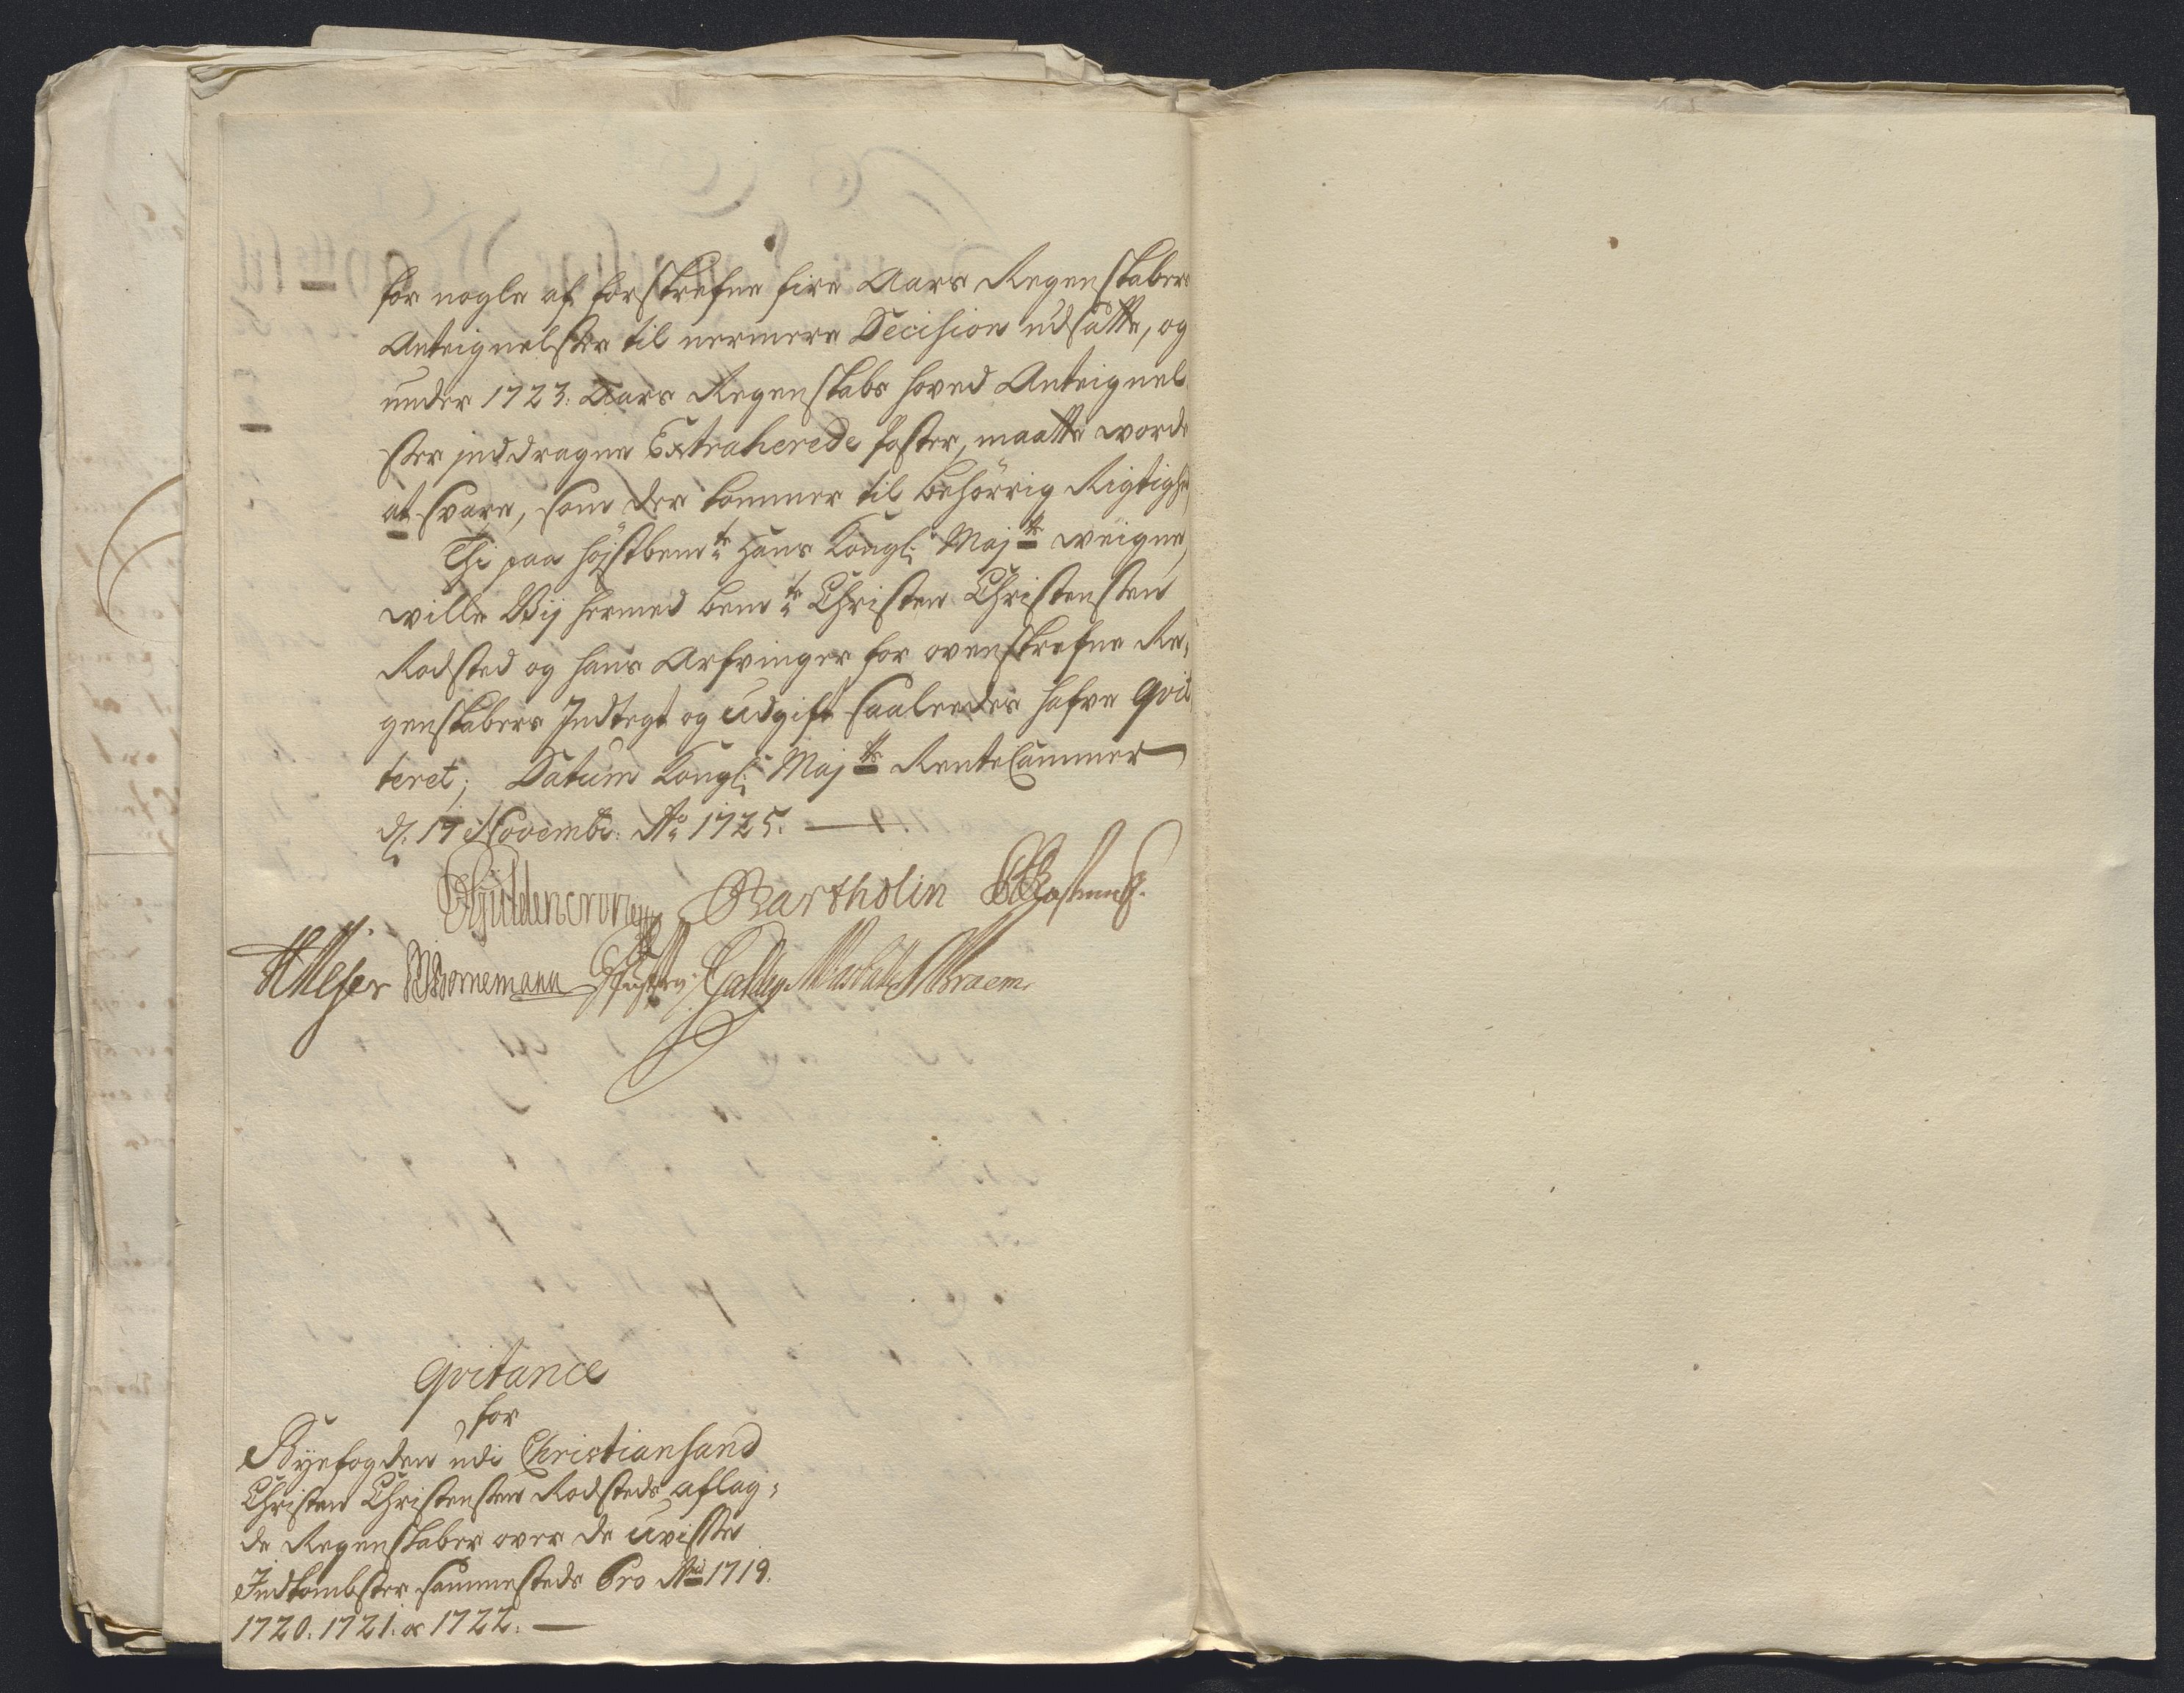 for nogle af forskrefne fire Aars Regenskabers
Anteignelser til nermere Decision udsatte, og
under 1723. Aars Regenskabs hoved Anteignel
ser inddragne Extraherede poster, maatte worde
at svare, som der kommer til behörrig Rigtighe
Thi paa höjstbemte Hans Kongl: Majts weigne,
wille Wij hermed bemte Christen Christensen
Rodsted og hans Arfvinger for ovenskrefne Re-
genskabers Indtegt og Udgift saaleedes hafve qvit
teret; Datum Kongl: Majts RenteCammer
d: 17 Novembr: Ao 1725.
Güldencrone Bartholin
HMejer Bornemann Braem
qvitance
for
Byefogden udi Christiansand
Christen Christensen Rodsteds aflag-
de Regenskaber over de Uvisse
Indkombster sammesteds Pro Ao 1719.
1720. 1721. og 1722.